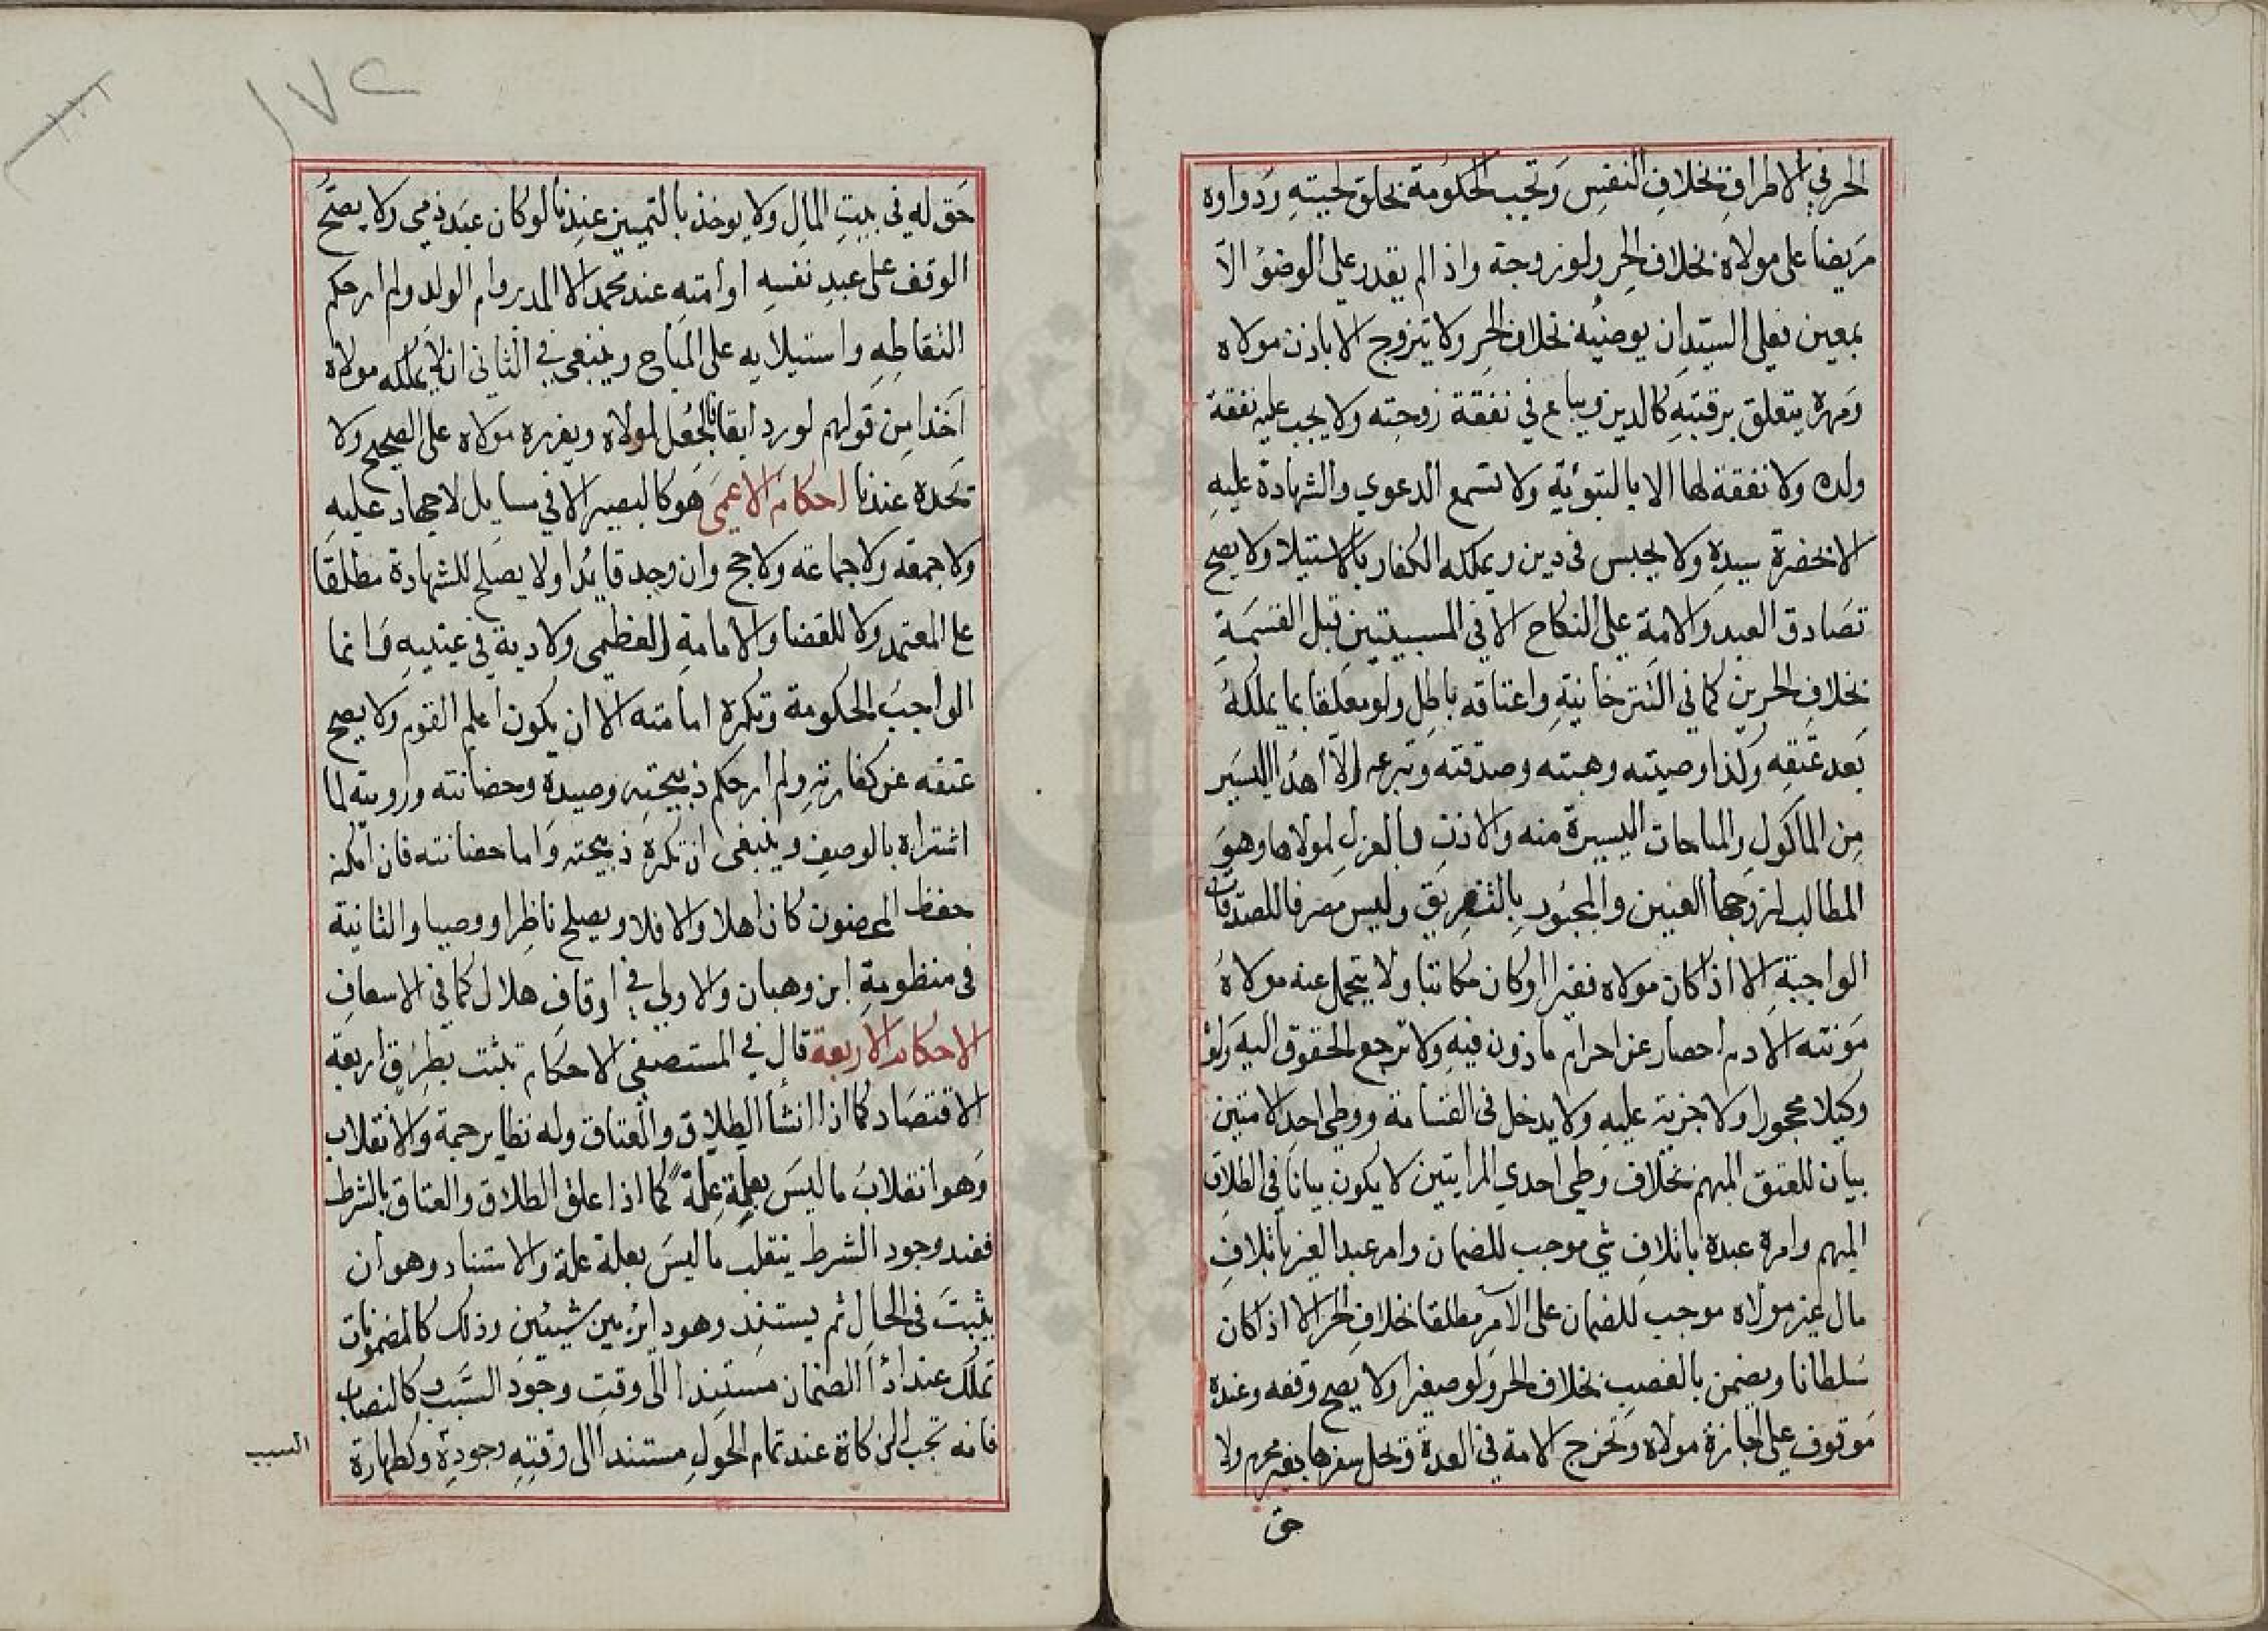 الحر في الاطراف بخلاف النفس وتجب الحكومة بحلق لحيته ودواوه
مريضا على مولاه بخلاف الحر ولو زوجة واذا لم يقدر على الوضؤ الا
بمعين فعلى السيد ان يوضئه بخلاف الحر ولا يتزوج الا باذن مولاه
ومهره يتعلق برقبته كالدين ويباع في نفقة زوجته ولا يجب عليه نفقة
ولده ولا نفقة لها الا بالتبوئة ولا تسمع الدعوى والشهادة عليه
الا بحضرة سيده ولا يحبس في دين ويملكه الكفار بالاستيلا ولا يصح
تصادق العبد والامة على النكاح الا في المسبيتين قبل القسمة
بخلاف الحرين كما في التترخانية واعتاقه باطل ولو معلقا بما يملكه
بعد عتقه وكذا وصيته وهبته وصدقته وتبرعه الا اهدا اليسير
من الماكول والمباحات اليسيرة منه والاذن بالعزل لمولاها وهو
المطالب لزوجها العنين والمجبوب بالتفريق وليس مصرفا للصدقات
الواجبة الا اذا كان مولاه فقيرا او كان مكاتبا ولا يتحمل عنه مولاه
مونته الا دم احصار عن احرام ماذون فيه ولا ترجع الحقوق اليه ولو
وكيلا محجورا ولا جزية عليه ولا يدخل في القسامة ووطى احد الامتين
بيان للعتق المبهم بخلاف وطى احدى المرايتين لا يكون بيانا في الطلاق
المبهم وامره عبده باتلاف شي موجب للضمان وامر عبد الغير باتلاف
مال غير مولاه موجب للضمان على الآمر مطلقا بخلاف الحر الا اذا كان
سلطانا ويضمن بالغصب بخلاف الحر ولو صغيرا ولا يصح وقفه وعنده
موقوف على اجازة مولاه وتخرج الامة في العدة وتحل سفرها بغير محرم ولا
حق
١٧٢
حق له في بيت المال ولا يوخذ بالتمييز عندنا لو كان عبد ذمي ولا يصح
الوقف على عبد نفسه او امته عند محمد الا المدبر وام الولد ولم ار حكم
التقاطه واستيلايه على المباح وينبغي في الثاني ان يملكه مولاه
اخذا من قولهم لو رد ابقا فالجعل لمولاه ويعزره مولاه على الصحيح ولا
تحده عندنا احكام الاعمى هو كالبصير الا في مسايل لا جهاد عليه
ولا جمعه ولا جماعة ولا حج وان وجد قايدا ولا يصلح للشهادة مطلقا
على المعتمد ولا للقضا والامامة العظمى ولا دية في عينيه وانما
الواجب الحكومة وتكره امامته الا ان يكون اعلم القوم ولا يصح
عتقه عن كفارة ولم ار حكم ذبيحته وصيده وحضانته ورويته لما
اشتراه بالوصف وينبغي ان تكره ذبيحته واما حضانته فان امكنه
حفظ المحضون كان اهلا والا فلا ويصلح ناظرا ووصيا والثانية
في منظومة ابن وهبان والاولى في اوقاف هلال كما في الاسعاف
الاحكام الاربعة قال في المستصفى الاحكام تثبت بطرق اربعة
الاقتصاد كما اذا انشأ الطلاق والعتاق وله نظاير جمة والانقلاب
وهو انقلاب ما ليس بعلة علة كما اذا علق الطلاق والعتاق بالشرط
فعند وجود الشرط ينقلب ما ليس بعلة علة والاستناد وهو ان
يثبت في الحال ثم يستند وهو داير بين شيئين وذلك كالمضمونات
تملك عند اداء الضمان مستندا الى وقت وجود السبب وكالنصاب
فانه تجب الزكاة عند تمام الحول مستندا الى وقته وجوده وكطهارة
السبب